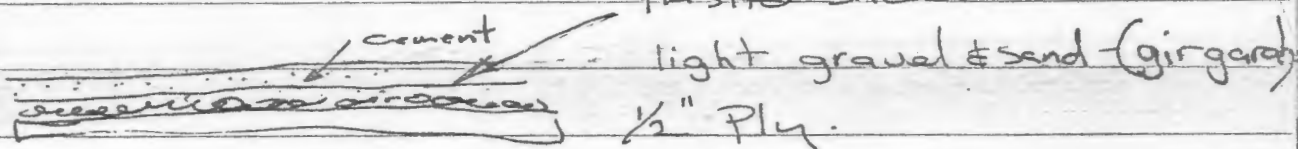 cement
light gravel & sand (girgard)
1/2" Ply.